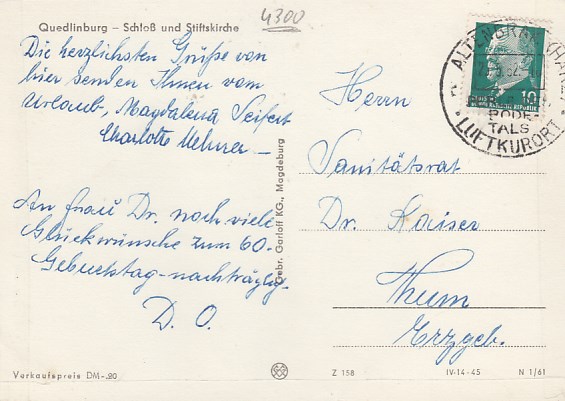 4300
Quedlinburg – Schloß und Stiftskirche
Die herzlichsten Grüße von
hier senden Ihnen vom
Urlaub, Magdalena Seifert
Charlotte
An Frau Dr. noch viele
Glückwünsche zum 60.
Geburtstag nachträglich.
D. O.
Gebr. Garloff KG., Magdeburg
ALTENBRAK (HARZ)
BODE-
TALS
LUFTKURORT
10
Herrn
Sanitätsrat
Dr. Kaiser
Thum
Erzgeb.
Verkaufspreis DM -.20
Z 158
IV-14-45
N 1/61